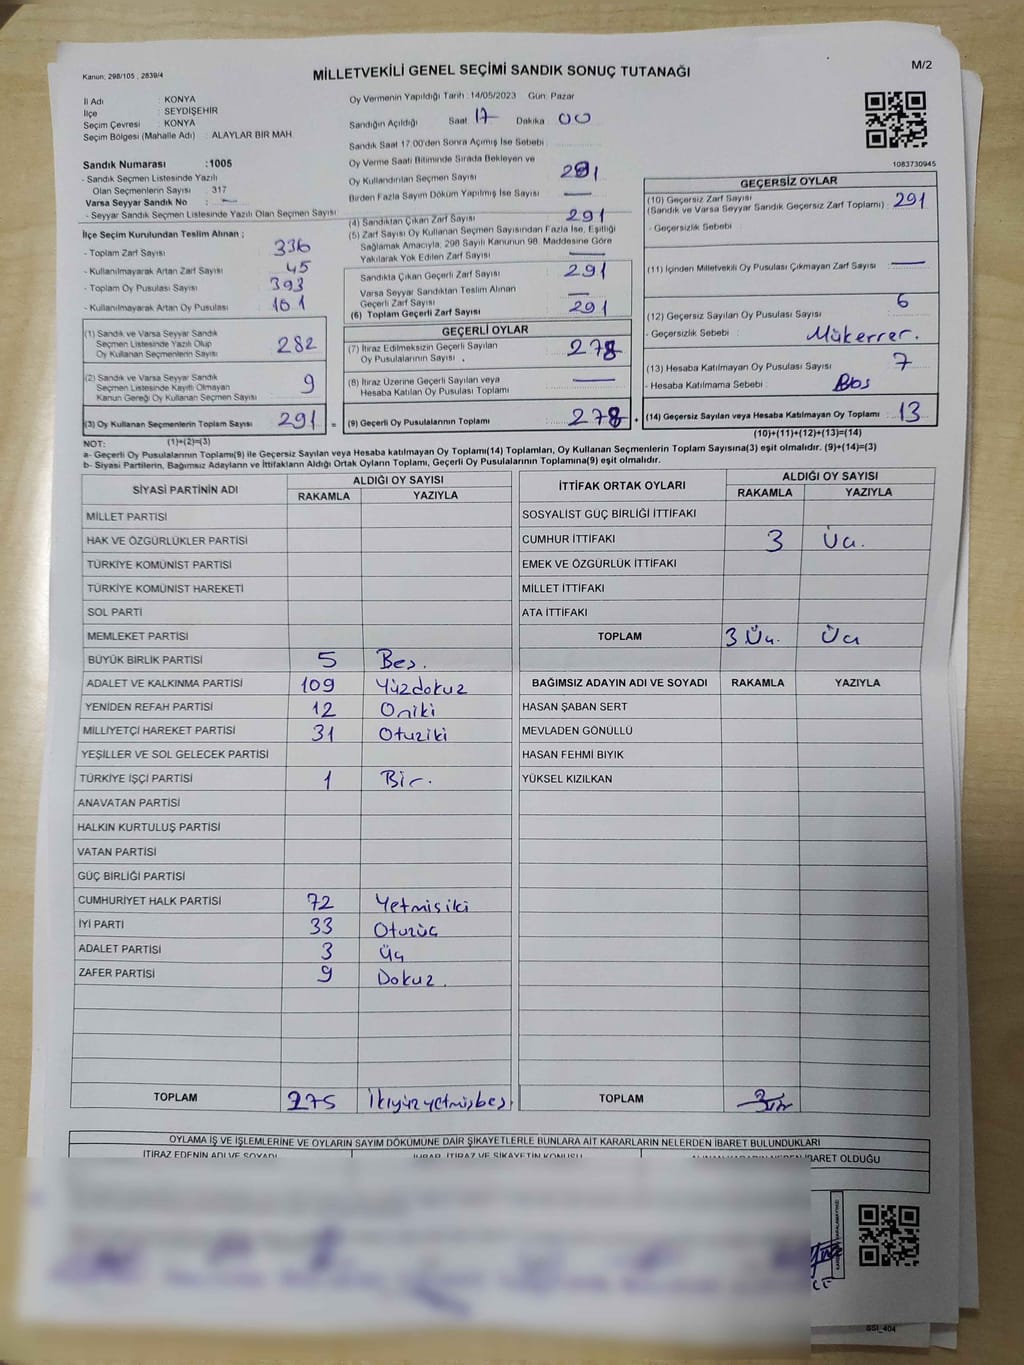 Kanun; 298/105 , 2839/4
MİLLETVEKİLİ GENEL SEÇİMİ SANDIK SONUÇ TUTANAĞI
M/2
İl Adı : KONYA
İlçe : SEYDİŞEHİR
Seçim Çevresi : KONYA
Seçim Bölgesi (Mahalle Adı) : ALAYLAR BİR MAH.
Sandık Numarası :1005
- Sandık Seçmen Listesinde Yazılı
Olan Seçmenlerin Sayısı : 317
Varsa Seyyar Sandık No : —
- Seyyar Sandık Seçmen Listesinde Yazılı Olan Seçmen Sayısı
İlçe Seçim Kurulundan Teslim Alınan ;
- Toplam Zarf Sayısı : 336
- Kullanılmayarak Artan Zarf Sayısı : 45
- Toplam Oy Pusulası : 393
- Kullanılmayarak Artan Oy Pusulası : 101
(1) Sandık ve Varsa Seyyar Sandık
Seçmen Listesinde Yazılı Olup
Oy Kullanan Seçmenlerin Sayısı 282
(2) Sandık ve Varsa Seyyar Sandık
Seçmen Listesinde Kayıtlı Olmayan
Kanun Gereği Oy Kullanan Seçmen Sayısı 9
(3) Oy Kullanan Seçmenlerin Toplam Sayısı 291 =
(1)+(2)=(3)
Oy Vermenin Yapıldığı Tarih : 14/05/2023 Gün: Pazar
Sandığın Açıldığı Saat : 17 Dakika : 00
Sandık Saat 17:00'den Sonra Açımış İse Sebebi :
Oy Verme Saati Bitiminde Sırada Bekleyen ve
Oy Kullandırılan Seçmen Sayısı : 291
Birden Fazla Sayım Döküm Yapılmış İse Sayısı : —
(4) Sandıktan Çıkan Zarf Sayısı : 291
(5) Zarf Sayısı Oy Kullanan Seçmen Sayısından Fazla İse, Eşitliği
Sağlamak Amacıyla, 298 Sayılı Kanunun 98. Maddesine Göre
Yakılarak Yok Edilen Zarf Sayısı : —
Sandıkta Çıkan Geçerli Zarf Sayısı : 291
Varsa Seyyar Sandıktan Teslim Alınan
Geçerli Zarf Sayısı : —
(6) Toplam Geçerli Zarf Sayısı : 291
GEÇERLİ OYLAR
(7) İtiraz Edilmeksizin Geçerli Sayılan
Oy Pusulalarının Sayısı : 278
(8) İtiraz Üzerine Geçerli Sayılan veya
Hesaba Katılan Oy Pusulası Toplamı —
(9) Geçerli Oy Pusulalarının Toplamı 278 +
1083730945
GEÇERSİZ OYLAR
(10) Geçersiz Zarf Sayısı
(Sandık ve Varsa Seyyar Sandık Geçersiz Zarf Toplamı) : 291
- Geçersizlik Sebebi :
(11) İçinden Milletvekili Oy Pusulası Çıkmayan Zarf Sayısı : —
(12) Geçersiz Sayılan Oy Pusulası Sayısı : 6
- Geçersizlik Sebebi : Mükerrer.
(13) Hesaba Katılmayan Oy Pusulası Sayısı : 7
- Hesaba Katılmama Sebebi : Boş
(14) Geçersiz Sayılan veya Hesaba Katılmayan Oy Toplamı : 13
(10)+(11)+(12)+(13)=(14)
NOT:
a- Geçerli Oy Pusulalarının Toplamı(9) ile Geçersiz Sayılan veya Hesaba katılmayan Oy Toplamı(14) Toplamları, Oy Kullanan Seçmenlerin Toplam Sayısına(3) eşit olmalıdır. (9)+(14)=(3)
b- Siyasi Partilerin, Bağımsız Adayların ve İttifakların Aldığı Ortak Oyların Toplamı, Geçerli Oy Pusulalarının Toplamına(9) eşit olmalıdır.
SİYASİ PARTİNİN ADI ALDIĞI OY SAYISI
RAKAMLA YAZIYLA
MİLLET PARTİSİ
HAK VE ÖZGÜRLÜKLER PARTİSİ
TÜRKİYE KOMÜNİST PARTİSİ
TÜRKİYE KOMÜNİST HAREKETİ
SOL PARTİ
MEMLEKET PARTİSİ
BÜYÜK BİRLİK PARTİSİ 5 Beş.
ADALET VE KALKINMA PARTİSİ 109 Yüzdokuz
YENİDEN REFAH PARTİSİ 12 Oniki
MİLLİYETÇİ HAREKET PARTİSİ 31 Otuziki
YEŞİLLER VE SOL GELECEK PARTİSİ
TÜRKİYE İŞÇİ PARTİSİ 1 Bir.
ANAVATAN PARTİSİ
HALKIN KURTULUŞ PARTİSİ
VATAN PARTİSİ
GÜÇ BİRLİĞİ PARTİSİ
CUMHURİYET HALK PARTİSİ 72 Yetmişiki
İYİ PARTİ 33 Otuzüç
ADALET PARTİSİ 3 Üç
ZAFER PARTİSİ 9 Dokuz.
TOPLAM 275 İkiyüzyetmişbeş
İTTİFAK ORTAK OYLARI ALDIĞI OY SAYISI
RAKAMLA YAZIYLA
SOSYALİST GÜÇ BİRLİĞİ İTTİFAKI
CUMHUR İTTİFAKI 3 Üç.
EMEK VE ÖZGÜRLÜK İTTİFAKI
MİLLET İTTİFAKI
ATA İTTİFAKI
TOPLAM 3 Üç. Üç
BAĞIMSIZ ADAYIN ADI VE SOYADI RAKAMLA YAZIYLA
HASAN ŞABAN SERT
MEVLADEN GÖNÜLLÜ
HASAN FEHMİ BIYIK
YÜKSEL KIZILKAN
TOPLAM
OYLAMA İŞ VE İŞLEMLERİNE VE OYLARIN SAYIM DÖKÜMÜNE DAİR ŞİKAYETLERLE BUNLARA AİT KARARLARIN NELERDEN İBARET BULUNDUKLARI
İTİRAZ EDENİN ADI VE SOYADI İHBAR, İTİRAZ VE ŞİKAYETİN KONUSU İBARET OLDUĞU
SSİ_404